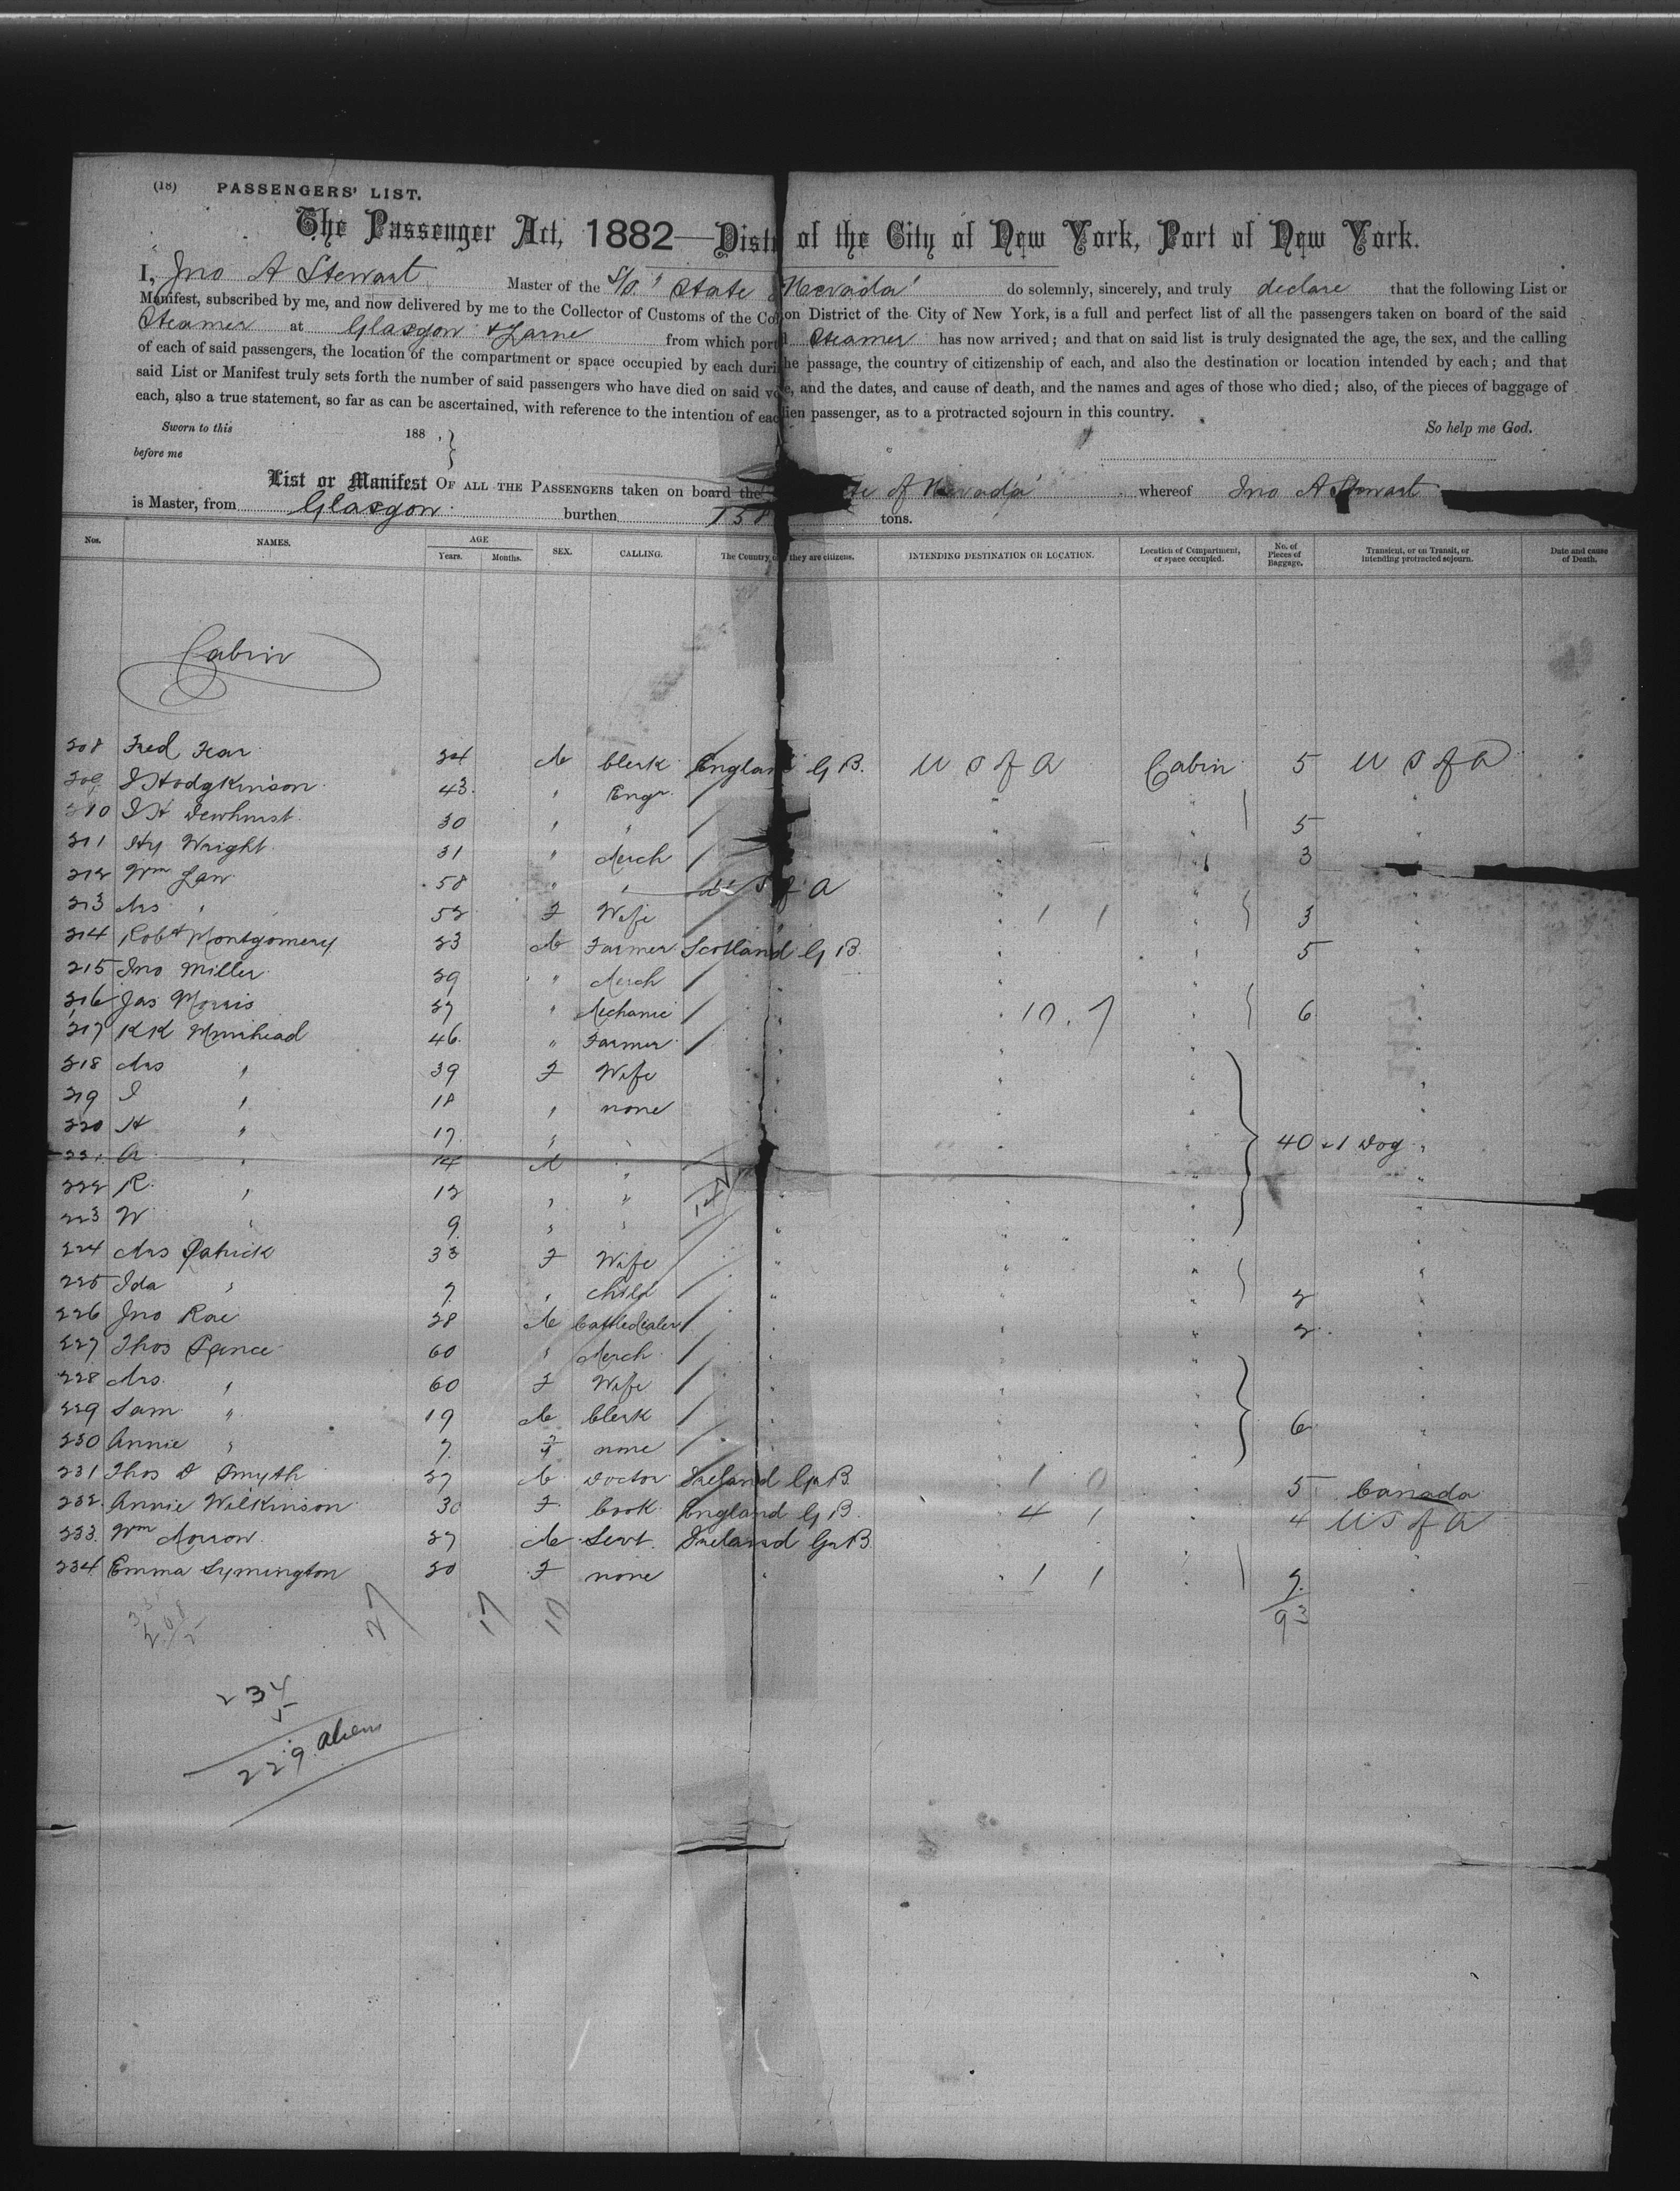 (18) PASSENGERS' LIST.
The Passenger Act, 1882—Dist of the City of New York, Port of New York.
I, Jno A Stewart Master of the S/S "State Nevada" do solemnly, sincerely, and truly declare that the following List or
Manifest, subscribed by me, and now delivered by me to the Collector of Customs of the Co on District of the City of New York, is a full and perfect list of all the passengers taken on board of the said
Steamer at Glasgow & Larne from which port Steamer has now arrived; and that on said list is truly designated the age, the sex, and the calling
of each of said passengers, the location of the compartment or space occupied by each duri he passage, the country of citizenship of each, and also the destination or location intended by each; and that
said List or Manifest truly sets forth the number of said passengers who have died on said vo e, and the dates, and cause of death, and the names and ages of those who died; also, of the pieces of baggage of
each, also a true statement, so far as can be ascertained, with reference to the intention of eac lien passenger, as to a protracted sojourn in this country.
Sworn to this 188 , So help me God.
before me
List or Manifest OF ALL THE PASSENGERS taken on board the te of Nevada whereof Jno A Stewart
is Master, from Glasgow burthen tons.
Nos. NAMES. AGE Years. Months. SEX. CALLING. The Country of they are citizens. INTENDING DESTINATION OR LOCATION. Location of Compartment, or space occupied. No. of Pieces of Baggage. Transient, or on Transit, or intending protracted sojourn. Date and cause of Death.
Cabin
208 Fred Fear 24 M Clerk England G B. U S of A Cabin 5 U S of A
209 J Hodgkinson 43 " Engr. / " "
210 J H Dewhurst 30 " " / " " 5 "
211 Hy Wright 31 " Merch / " " 3 "
212 Wm Law 58 " " U S of A " "
213 Mrs " 52 F Wife " 1 1 " 3 "
214 Robt Montgomery 23 M Farmer Scotland G B. " " 5 "
215 Jno Miller 29 " Merch / " " "
216 Jas Morris 27 " Mechanic / " 10.7 " 6 "
217 R K Muirhead 46 " Farmer / " " "
218 Mrs " 39 F Wife " " " "
219 J " 18 " none " " " "
220 H " 17 " " " " " 40 & 1 Dog "
221 A " 14 M " / " "
222 R " 12 " " " " " "
223 W " 9 " " / " " "
224 Mrs Patrick 33 F Wife / " " "
225 Ida " 7 " child / " " 2 "
226 Jno Rae 28 M Cattledealer / " " 2 "
227 Thos Pance 60 " Merch / " " "
228 Mrs " 60 F Wife / " " "
229 Sam " 19 M Clerk / " " 6 "
230 Annie " 7 F none / " " "
231 Thos D Smyth 27 M Doctor Ireland G B. " 1 0 " 5 Canada
232 Annie Wilkinson 30 F Cook England G B. " 4 1 " 4 U S of A
233 Wm Morrow 27 M Servt. Ireland G B. " "
234 Emma Symington 20 F none " " 1 1 " 7 "
27 17 10 93
234
5
229 aliens